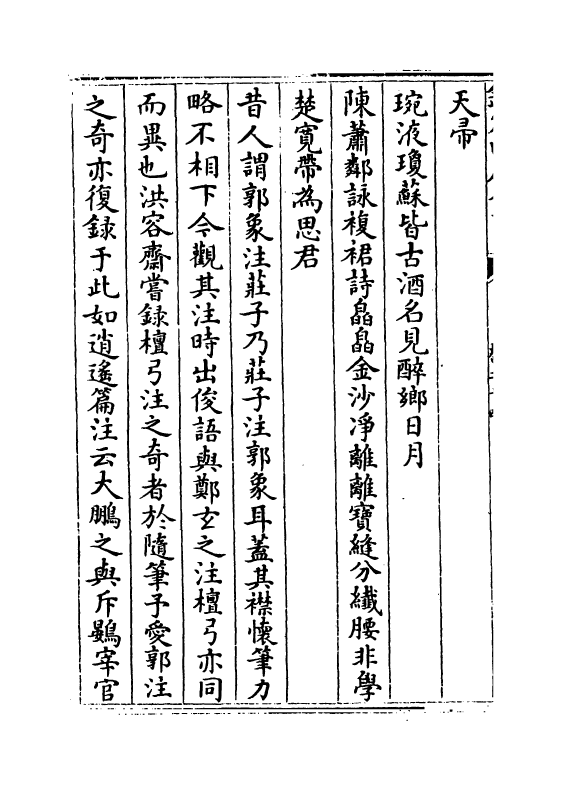 天帚
琬液瓊蘇皆古酒名見醉鄉日月
陳蕭鄰詠複裙詩皛皛金沙淨離離寶縫分纖腰非學
楚寬帶為思君
昔人謂郭象注莊子乃莊子注郭象耳蓋其襟懷筆力
略不相下今觀其注時出俊語與鄭玄之注檀弓亦同
而異也洪容齋嘗録檀弓注之奇者於隨筆予愛郭注
之奇亦復録于此如逍遙篇注云大鵬之與斥鷃宰官